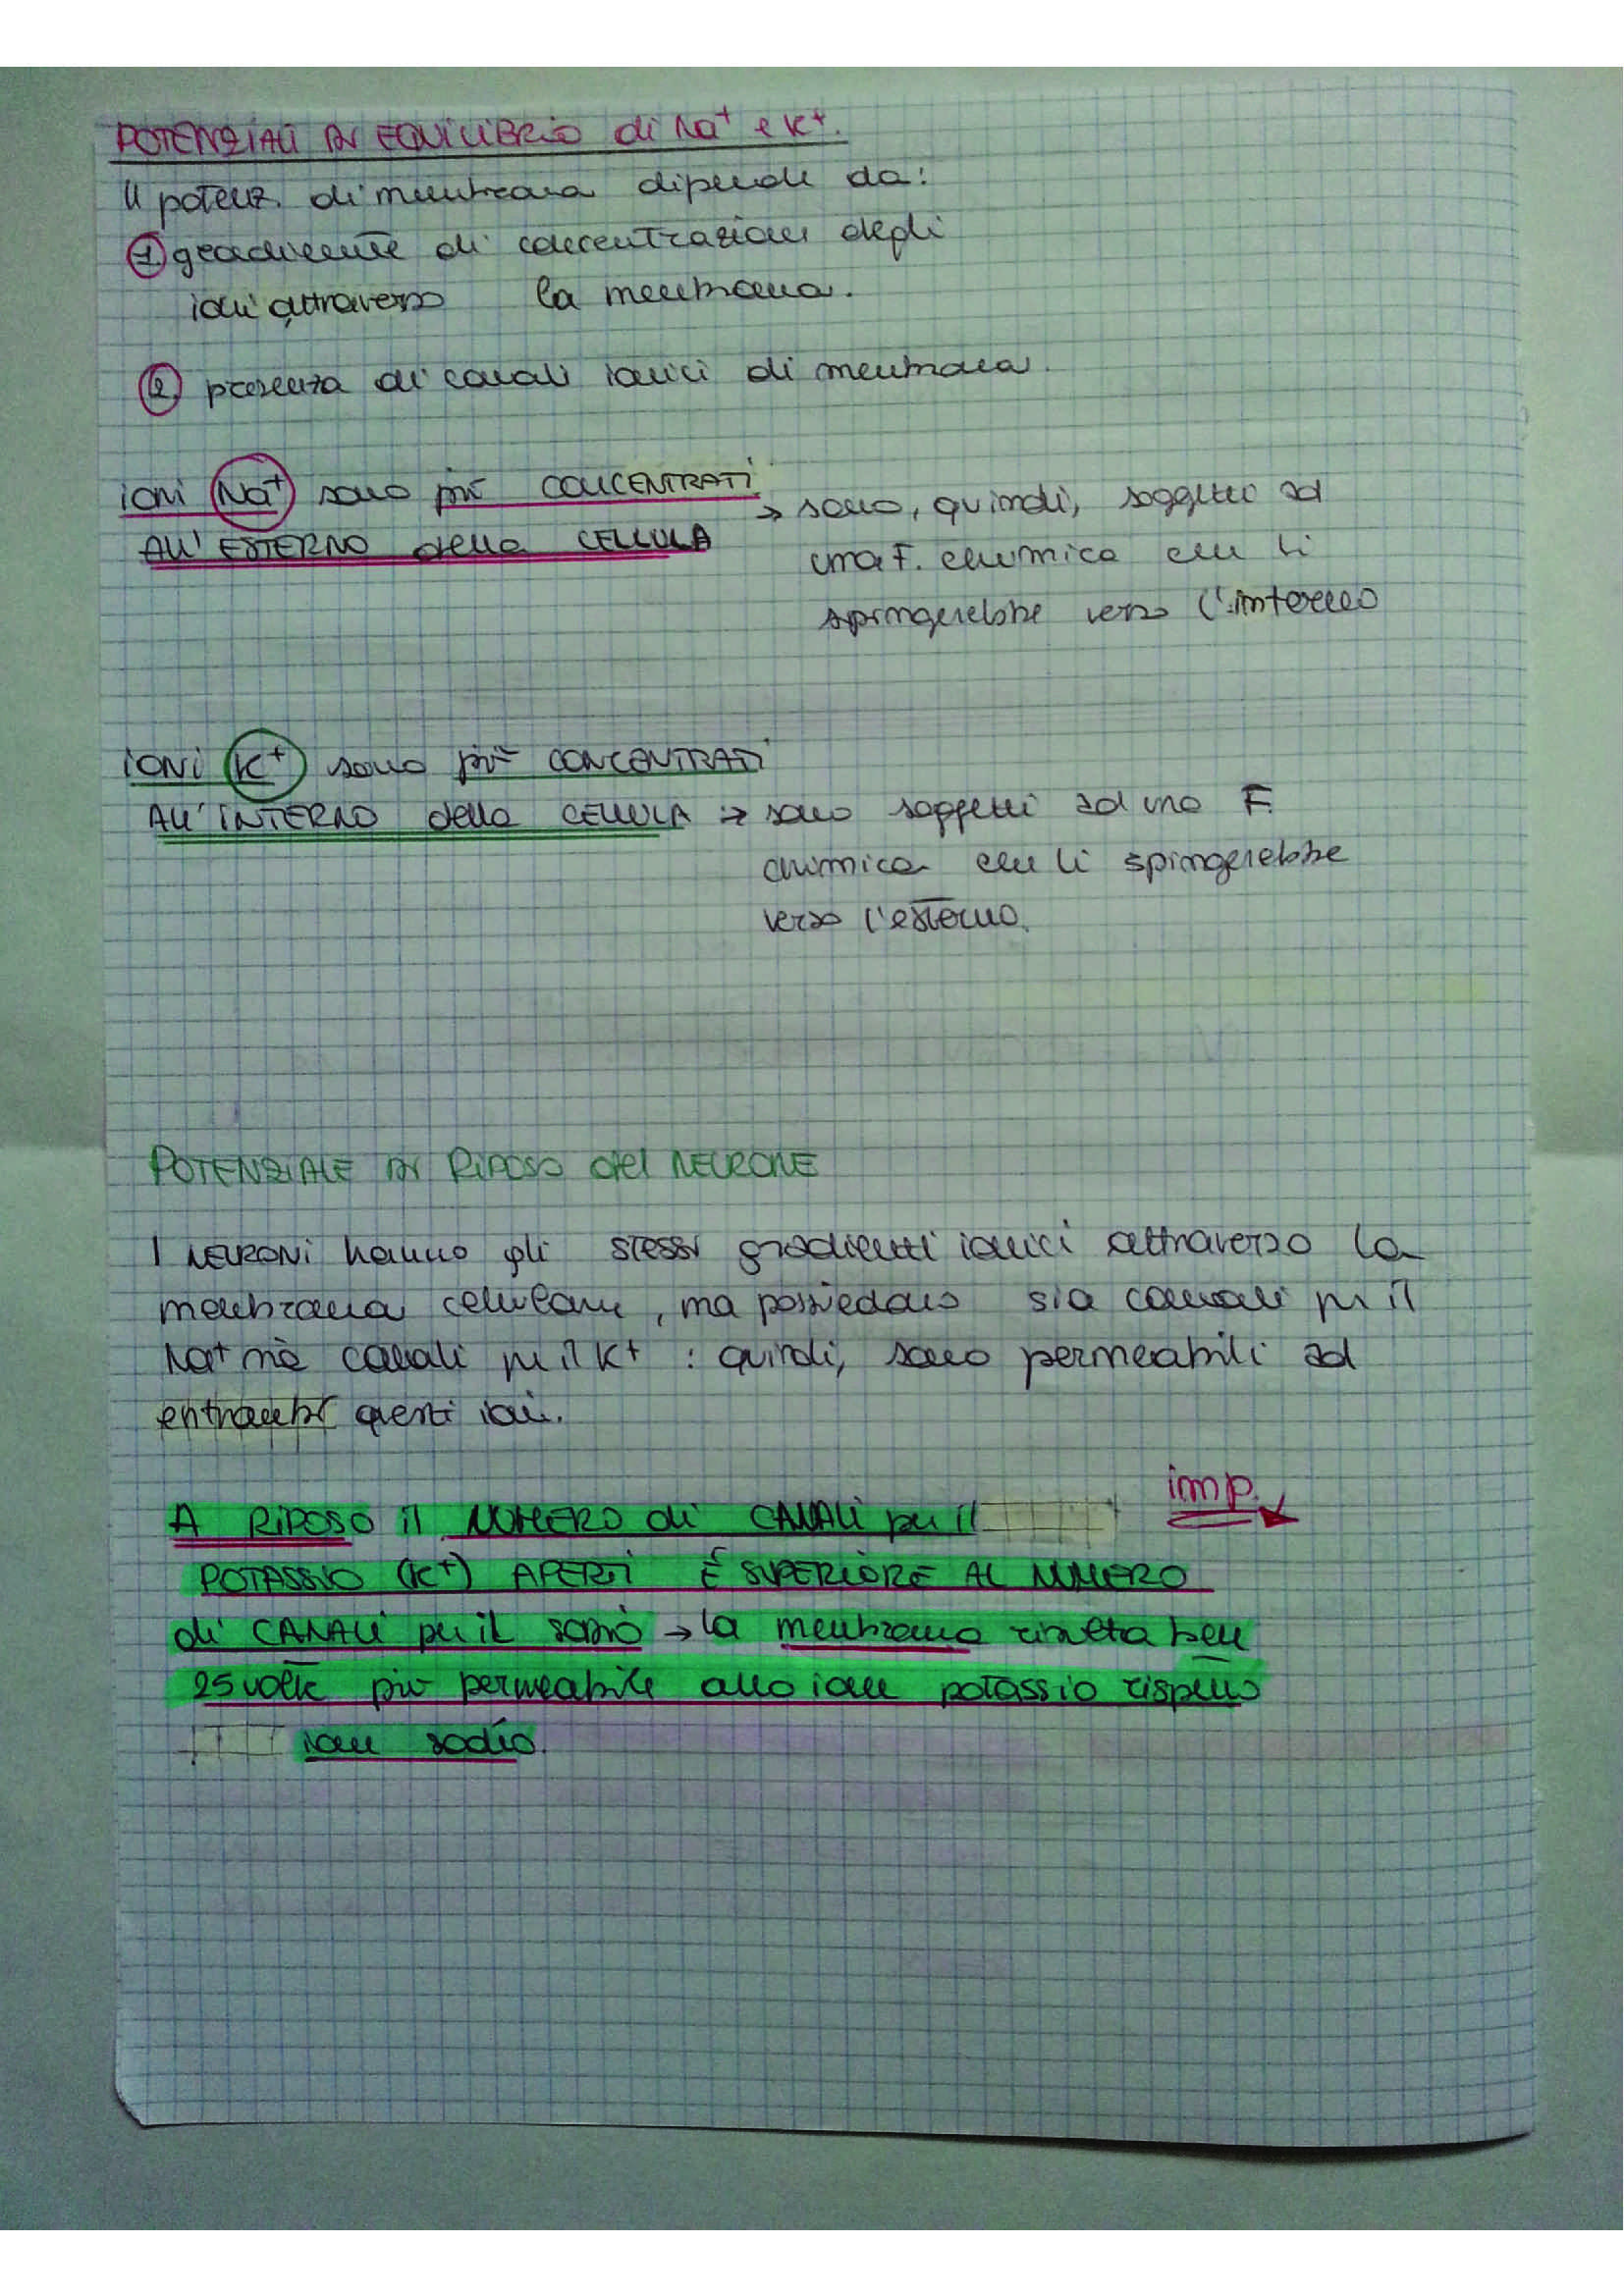 POTENZIALI DI EQUILIBRIO di Na⁺ e K⁺.
Il potenz. di membrana dipende da:
① gradiente di concentrazione degli
ioni attraverso la membrana.
② presenza di canali ionici di membrana.
ioni Na⁺ sono più CONCENTRATI
ALL'ESTERNO della CELLULA
→ sono, quindi, soggetti ad
una F. chimica che li
spingerebbe verso l'interno
ioni K⁺ sono più CONCENTRATI
ALL'INTERNO della CELLULA → sono soggetti ad una F.
chimica che li spingerebbe
verso l'esterno.
POTENZIALE DI RIPOSO del NEURONE
I NEURONI hanno gli stessi gradienti ionici attraverso la
membrana cellulare, ma possiedono sia canali per il
Na⁺ nè canali per il K⁺ : quindi, sono permeabili ad
entrambi questi ioni.
imp.
A RIPOSO il NUMERO di CANALI per il
POTASSIO (K⁺) APERTI É SUPERIORE AL NUMERO
di CANALI per il sodio → la membrana risulta ben
25 volte più permeabile allo ione potassio rispetto
ione sodio.